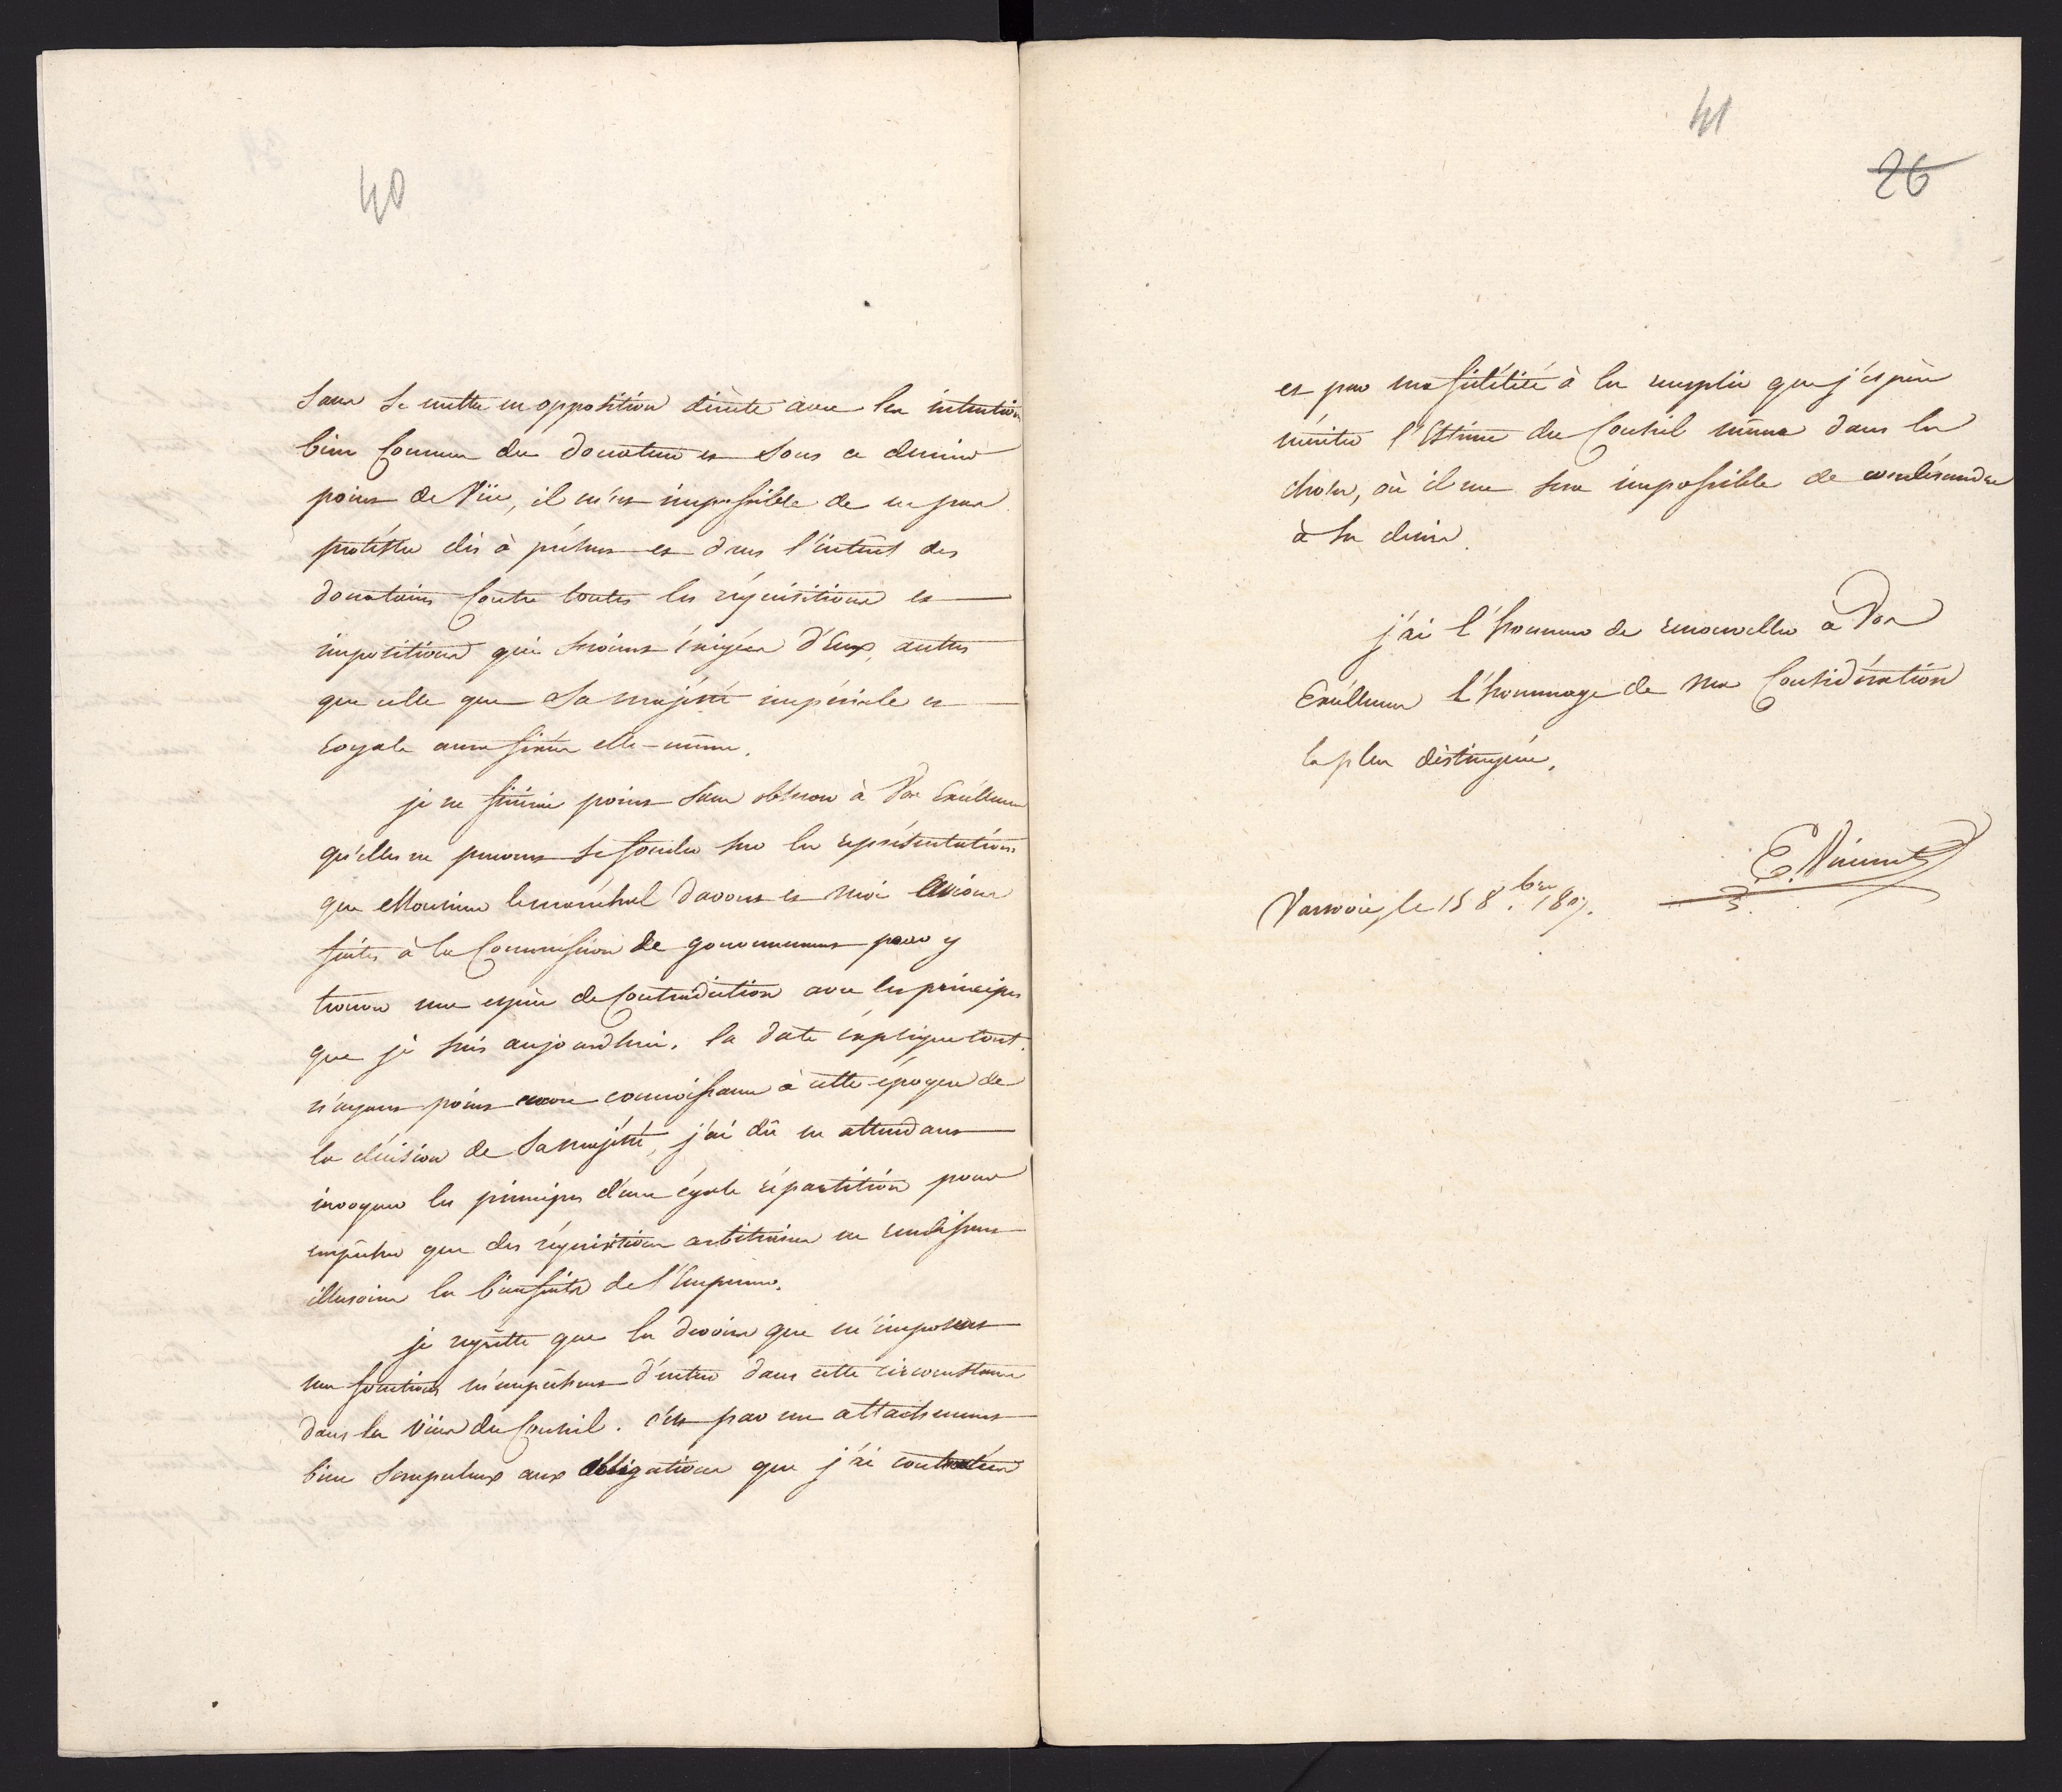 40
sans se mettre en opposition directe avec les intentions
bien connues du donateur et sous ce dernier
point de vüe, il m'est impossible de ne pas
protester dès à présent et dans l'intérêt des
donataires contre toutes les réquisitions et
impositions qui seroient éxigées d'Eux, autres
que celle que Sa majésté impériale et
Royale aura fixées elle-même.
je ne finirai point sans observer à Vos Excellences
qu'elles ne peuvent se fonder sur les représentations
que Monsieur le maréchal davout et moi avions
faites à la Commission de gouvernement pour y
trouver une espèce de Contradiction avec les principes
que je suis aujourdhui. la date éxplique tout.
n'ayant point encore connoissance à cette époque de
la décision de Sa majésté, j'ai dû en attendant
invoquer les principes d'une égale répartition pour
empêcher que des réquisitions arbitraires ne rendissent
illusoires les bienfaits de l'Empereur.
je regrette que les devoirs que m'imposent
mes fonctions m'empêchent d'entrer dans cette circonstance
dans les vües du Conseil. c'est par un attachement
bien scrupuleux aux obligations que j'ai contractées
41
26
et par ma fidélité à les remplir que j'espère
mériter l'Estime du Conseil même dans les
choses, où il me sera impossible de condéscendre
à ses desirs.
j'ai l'honneur de renouveller à Vos
Excellences l'hommage de ma Considération
la plus distinguée.
E. Vincent
Varsovie, le 15 8.bre 1807.